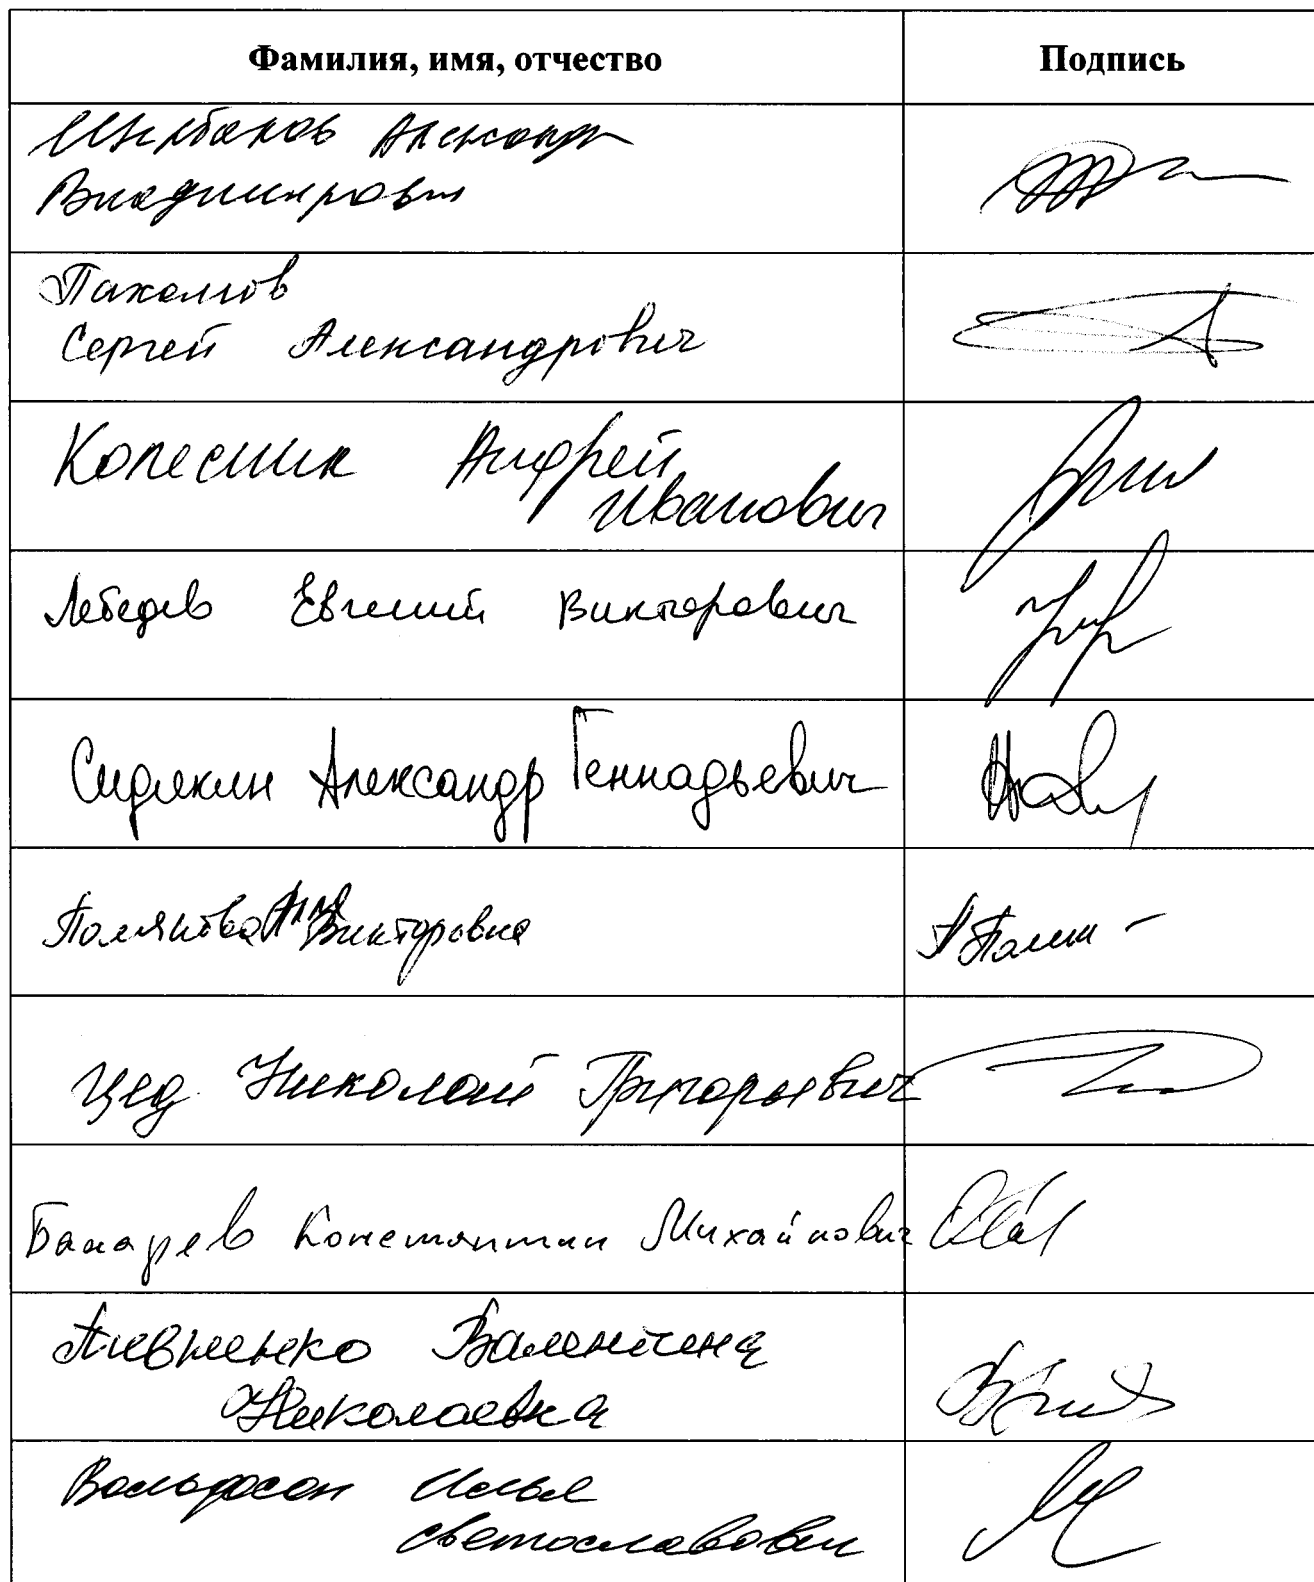 Фамилия, имя, отчество Подпись
Александр
Владимирович
Пахомов
Сергей Александрович
Колесник Андрей
Иванович
Лебедев Евгений Викторович
Сидякин Александр Геннадьевич
Полякова Анна Викторовна
Цед Николай Григорьевич
Бахарев Константин Михайлович
Пивненко Валентина
Николаевна
Вольфсон Илья
Светославович